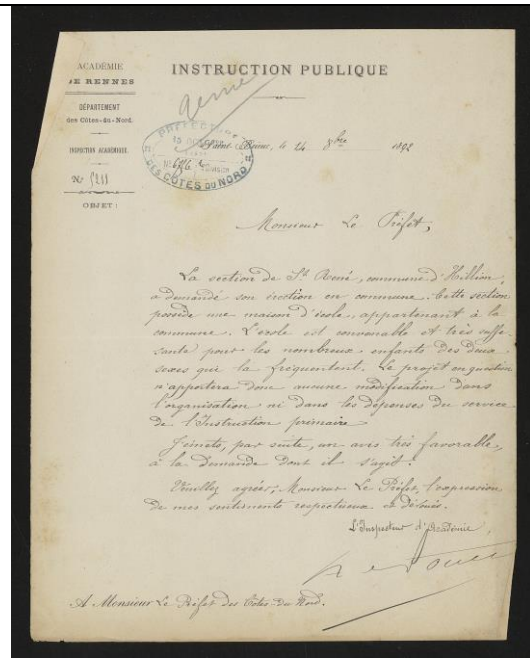 ACADÉMIE
DE RENNES
DÉPARTEMENT
des Côtes-du-Nord.
INSPECTION ACADÉMIQUE.
N°
OBJET :
INSTRUCTION PUBLIQUE
PRÉFECTURE
DES CÔTES DU NORD
Saint-Brieuc, le 24 8bre 1892
Monsieur Le Préfet,
La section de St René, commune d'Hillion,
a demandé son érection en commune. Cette section
possède une maison d'école, appartenant à la
commune. L'école est convenable et très suffi-
sante pour les nombreux enfants des deux
sexes qui la fréquentent. Le projet en question
n'apportera donc aucune modification dans
l'organisation ni dans les dépenses du service
de l'Instruction primaire.
J'émets, par suite, un avis très favorable,
à la demande dont il s'agit.
Veuillez agréer, Monsieur Le Préfet, l'expression
de mes sentiments respectueux et dévoués.
L'Inspecteur d'Académie,
A Monsieur Le Préfet des Côtes-du-Nord.